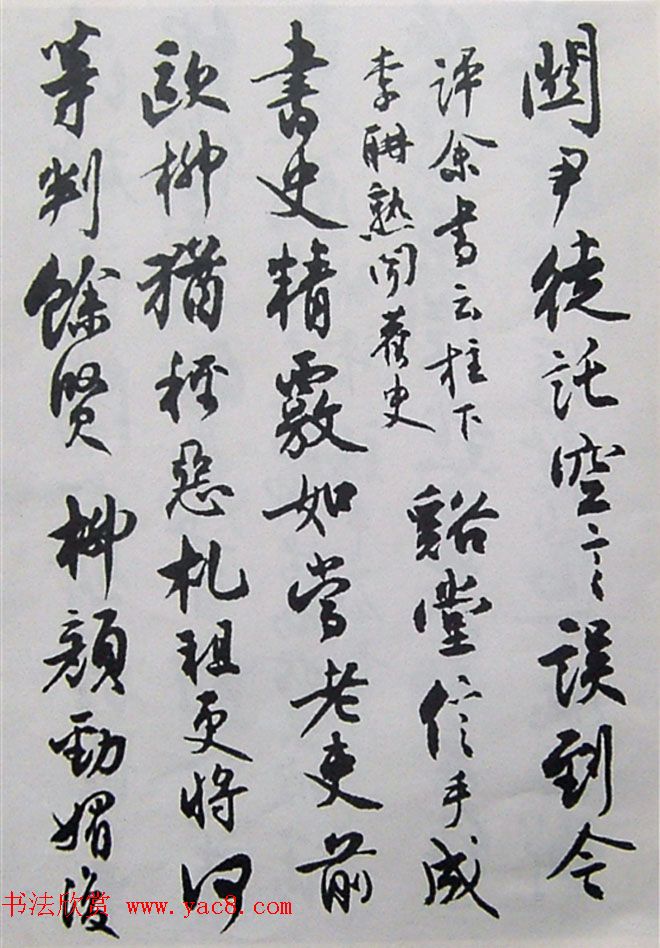 關尹徒託空言誤到今
評余書云柱下
李耼熟聞舊史
谿堂信手成
書史精覈如當老吏前
歐柳猶稱惡札祖更將何
等判餘賢 柳顏勁媚後
书法欣赏 www.yac8.com